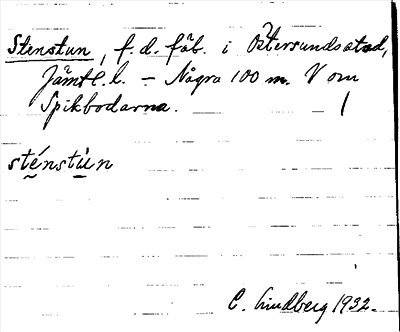 Stenstun, f.d. fäb. i Östersunds stad,
Jämtl. l. - Några 100 m. V om
Spikbodarna.
sténstùn
C. Lindberg 1932.